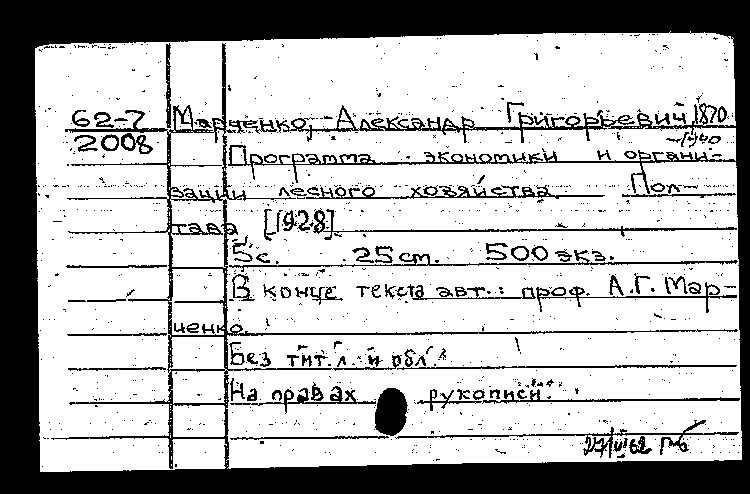 62-7 Марченко, Александр Григорьевич, 1870
2008 -1940
Программа экономики и органи-
зации лесного хозяйства. Пол-
тава, [1928].
5 с. 25 см. 500 экз.
В конце текста авт.: проф. А.Г. Мар-
ченко.
Без тит. л. и обл.
На правах рукописи.
27/VI 62